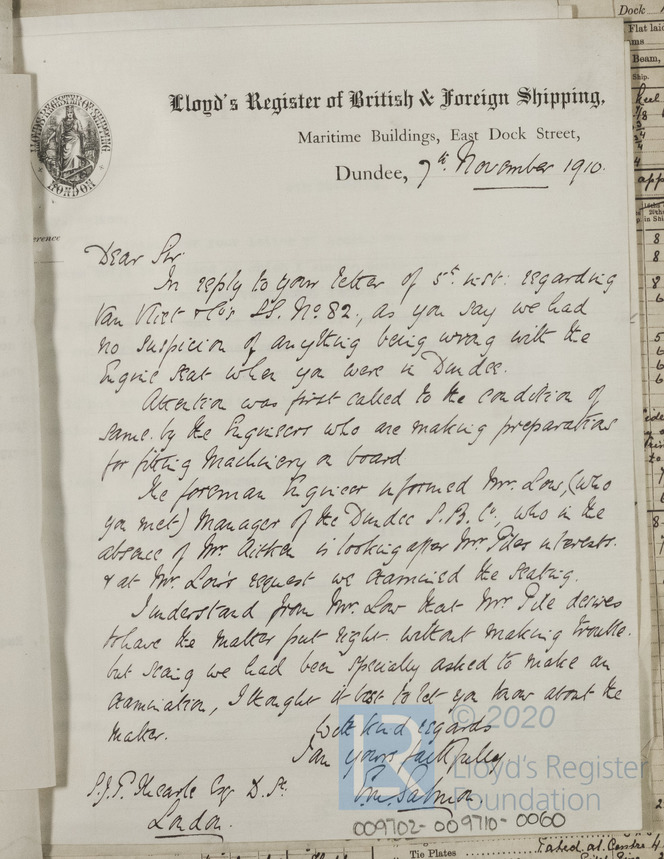 Lloyd's Register of British & Foreign Shipping,
Maritime Buildings, East Dock Street,
Dundee, 7th November 1910.
LLOYD'S REGISTER OF SHIPPING
LONDON
Dear Sir
In reply to your letter of 5th inst: regarding
Van Vliet & Co's S.S. No 82, as you say we had
no suspicion of anything being wrong with the
Engine seat when you were in Dundee.
Attention was first called to the condition of
same by the Engineers who are making preparations
for fitting Machinery on board
The foreman Engineer informed Mr. Low, (who
you met) Manager of the Dundee S. B. Co, who in the
absence of Mr. Aitken is looking after Mr Piles interests.
& at Mr. Low's request we examined the seating.
I understand from Mr. Low that Mr Pile desires
to have the matter put right without making trouble.
but seeing we had been specially asked to make an
examination, I thought it best to let you know about the
matter.
With kind regards
I am yours faithfully
London.
© 2020
Lloyd's Register
Foundation
009702-009710-0060
Dock
Flat laid
Beam,
Ship.
Tie Plates